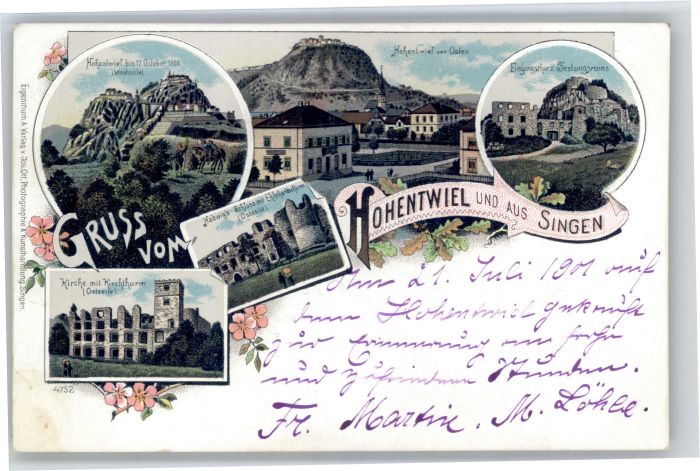 Hohentwiel bis 17. October 1800.
(Westseite)
Hohentwiel von Osten
Eingangsthor z. Festungsruine
Hadwigs-Schloss mit Ekkehardsthurm
(Ostseite)
GRUSS VOM
HOHENTWIEL UND AUS SINGEN
Kirche mit Kirchthurm
(Ostseite)
4752
Eigenthum & Verlag v. Jos. Ott, Photographie & Kunsthandlung, Singen.
Am 21. Juli 1901 auf
dem Hohentwiel geknüpft
zur Erinnerung an frohe
und zufriedene Stunden.
Fr. Martin. M. Löhle.